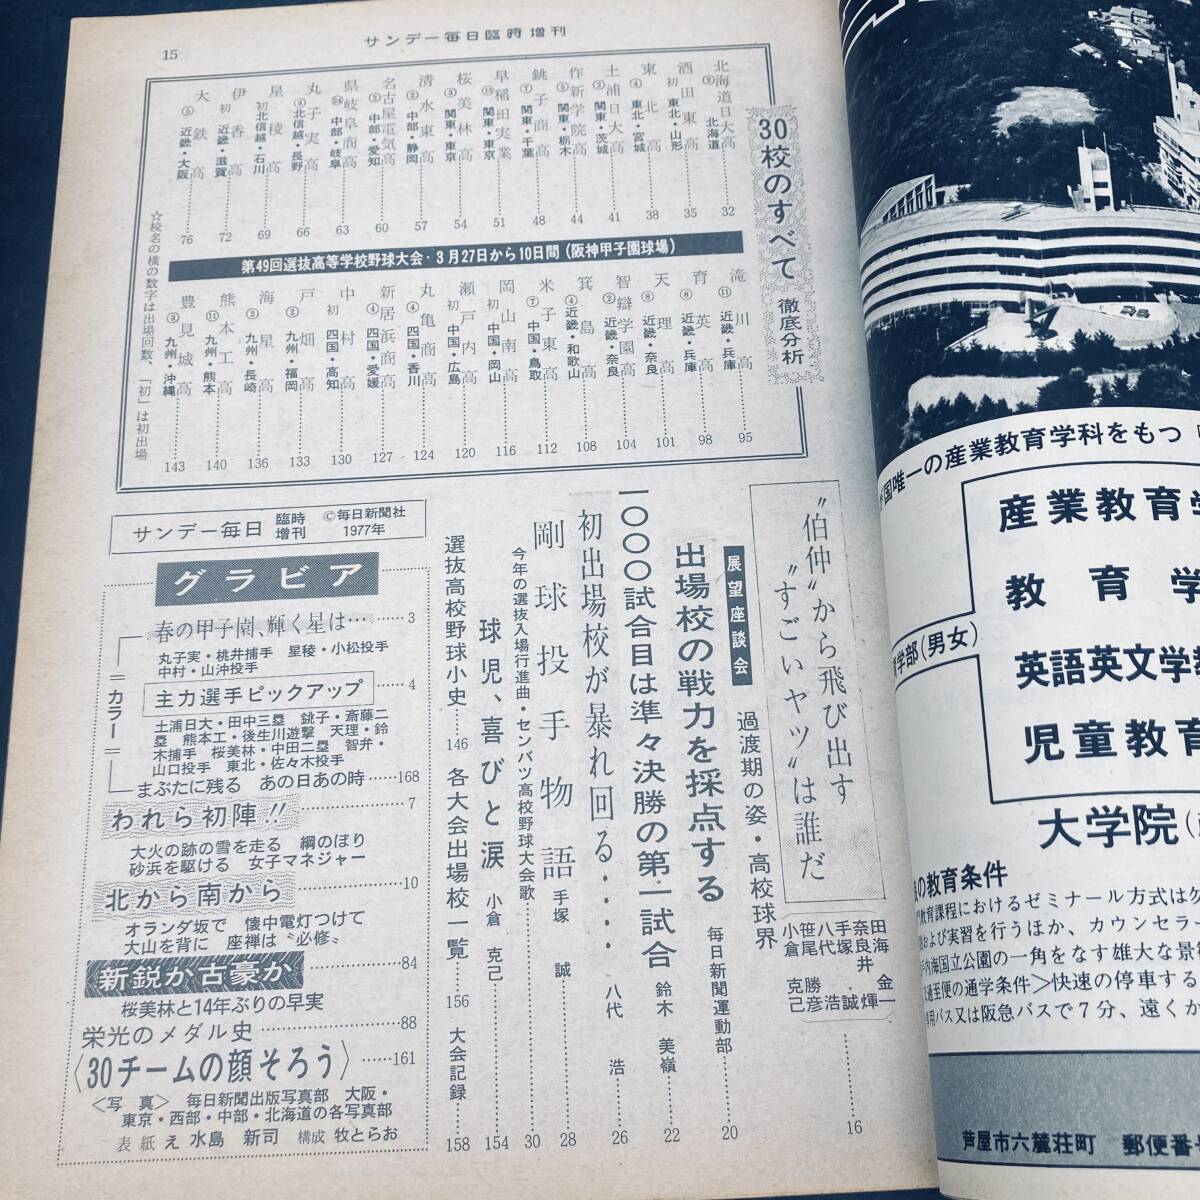 15
サンデー毎日臨時増刊
30校のすべて 徹底分析
北海道日大高 ② 北海道 32
酒田東高 初 東北・山形 35
東北高 ④ 東北・宮城 38
土浦日大高 ② 関東・茨城 41
作新学院高 ⑤ 関東・栃木 44
銚子商高 ⑦ 関東・千葉 48
早稲田実業 ⑩ 関東・東京 51
桜美林高 ③ 関東・東京 54
清水東高 ② 中部・静岡 57
名古屋電気高 ⑤ 中部・愛知 60
県岐阜商高 ㉔ 中部・岐阜 63
丸子実高 ③ 北信越・長野 66
星稜高 初 北信越・石川 69
伊香高 初 近畿・滋賀 72
大鉄高 ⑤ 近畿・大阪 76
第49回選抜高等学校野球大会・3月27日から10日間(阪神甲子園球場)
滝川高 ⑪ 近畿・兵庫 95
育英高 ⑧ 近畿・兵庫 98
天理高 ⑧ 近畿・奈良 101
智辯学園高 ② 近畿・奈良 104
箕島高 ④ 近畿・和歌山 108
米子東高 ⑦ 中国・鳥取 112
岡山南高 初 中国・岡山 116
瀬戸内高 初 中国・広島 120
丸亀商高 ④ 四国・香川 124
新居浜商高 ④ 四国・愛媛 127
中村高 初 四国・高知 130
戸畑高 ② 九州・福岡 133
海星高 ② 九州・長崎 136
熊本工高 ⑪ 九州・熊本 140
豊見城高 ③ 九州・沖縄 143
☆校名の横の数字は出場回数、「初」は初出場
〝伯仲〟から飛び出す
〝すごいヤツ〟は誰だ
田海 金一
奈良井 輝
手塚 誠
八代 浩
笹尾 勝彦
小倉 克己
16
展望座談会
過渡期の姿・高校球界
出場校の戦力を採点する 毎日新聞運動部 20
一〇〇〇試合目は準々決勝の第一試合 鈴木 美嶺 22
初出場校が暴れ回る 八代 浩 26
剛球投手物語 手塚 誠 28
今年の選抜入場行進曲・センバツ高校野球大会歌 30
球児、喜びと涙 小倉 克己 154
選抜高校野球小史 146 各大会出場校一覧 156 大会記録 158
サンデー毎日 臨時増刊 ©毎日新聞社 1977年
グラビア
カラー
春の甲子園、輝く星は… 3
丸子実・桃井捕手 星稜・小松投手
中村・山沖投手
主力選手ピックアップ 4
土浦日大・田中三塁 銚子・斎藤二
塁 熊本工・後生川遊撃 天理・鈴
木捕手 桜美林・中田二塁 智弁・
山口投手 東北・佐々木投手
まぶたに残る あの日あの時 168
われら初陣!! 7
大火の跡の雪を走る 綱のぼり
砂浜を駆ける 女子マネジャー
北から南から 10
オランダ坂で 懐中電灯つけて
大山を背に 座禅は〝必修〟
新鋭か古豪か 84
桜美林と14年ぶりの早実
栄光のメダル史 88
〈30チームの顔そろう〉 161
<写真> 毎日新聞出版写真部 大阪・
東京・西部・中部・北海道の各写真部
表紙え 水島 新司 構成 牧とらお
国唯一の産業教育学科をもつ
産業教育学
教育学
学部(男女)
英語英文学
児童教育
大学院
の教育条件
教育課程におけるゼミナール方式は
および実習を行うほか、カウンセラ
戸内海国立公園の一角をなす雄大な景
交通至便の通学条件>快速の停車する
専用バス又は阪急バスで7分、遠くか
芦屋市六麓荘町 郵便番号